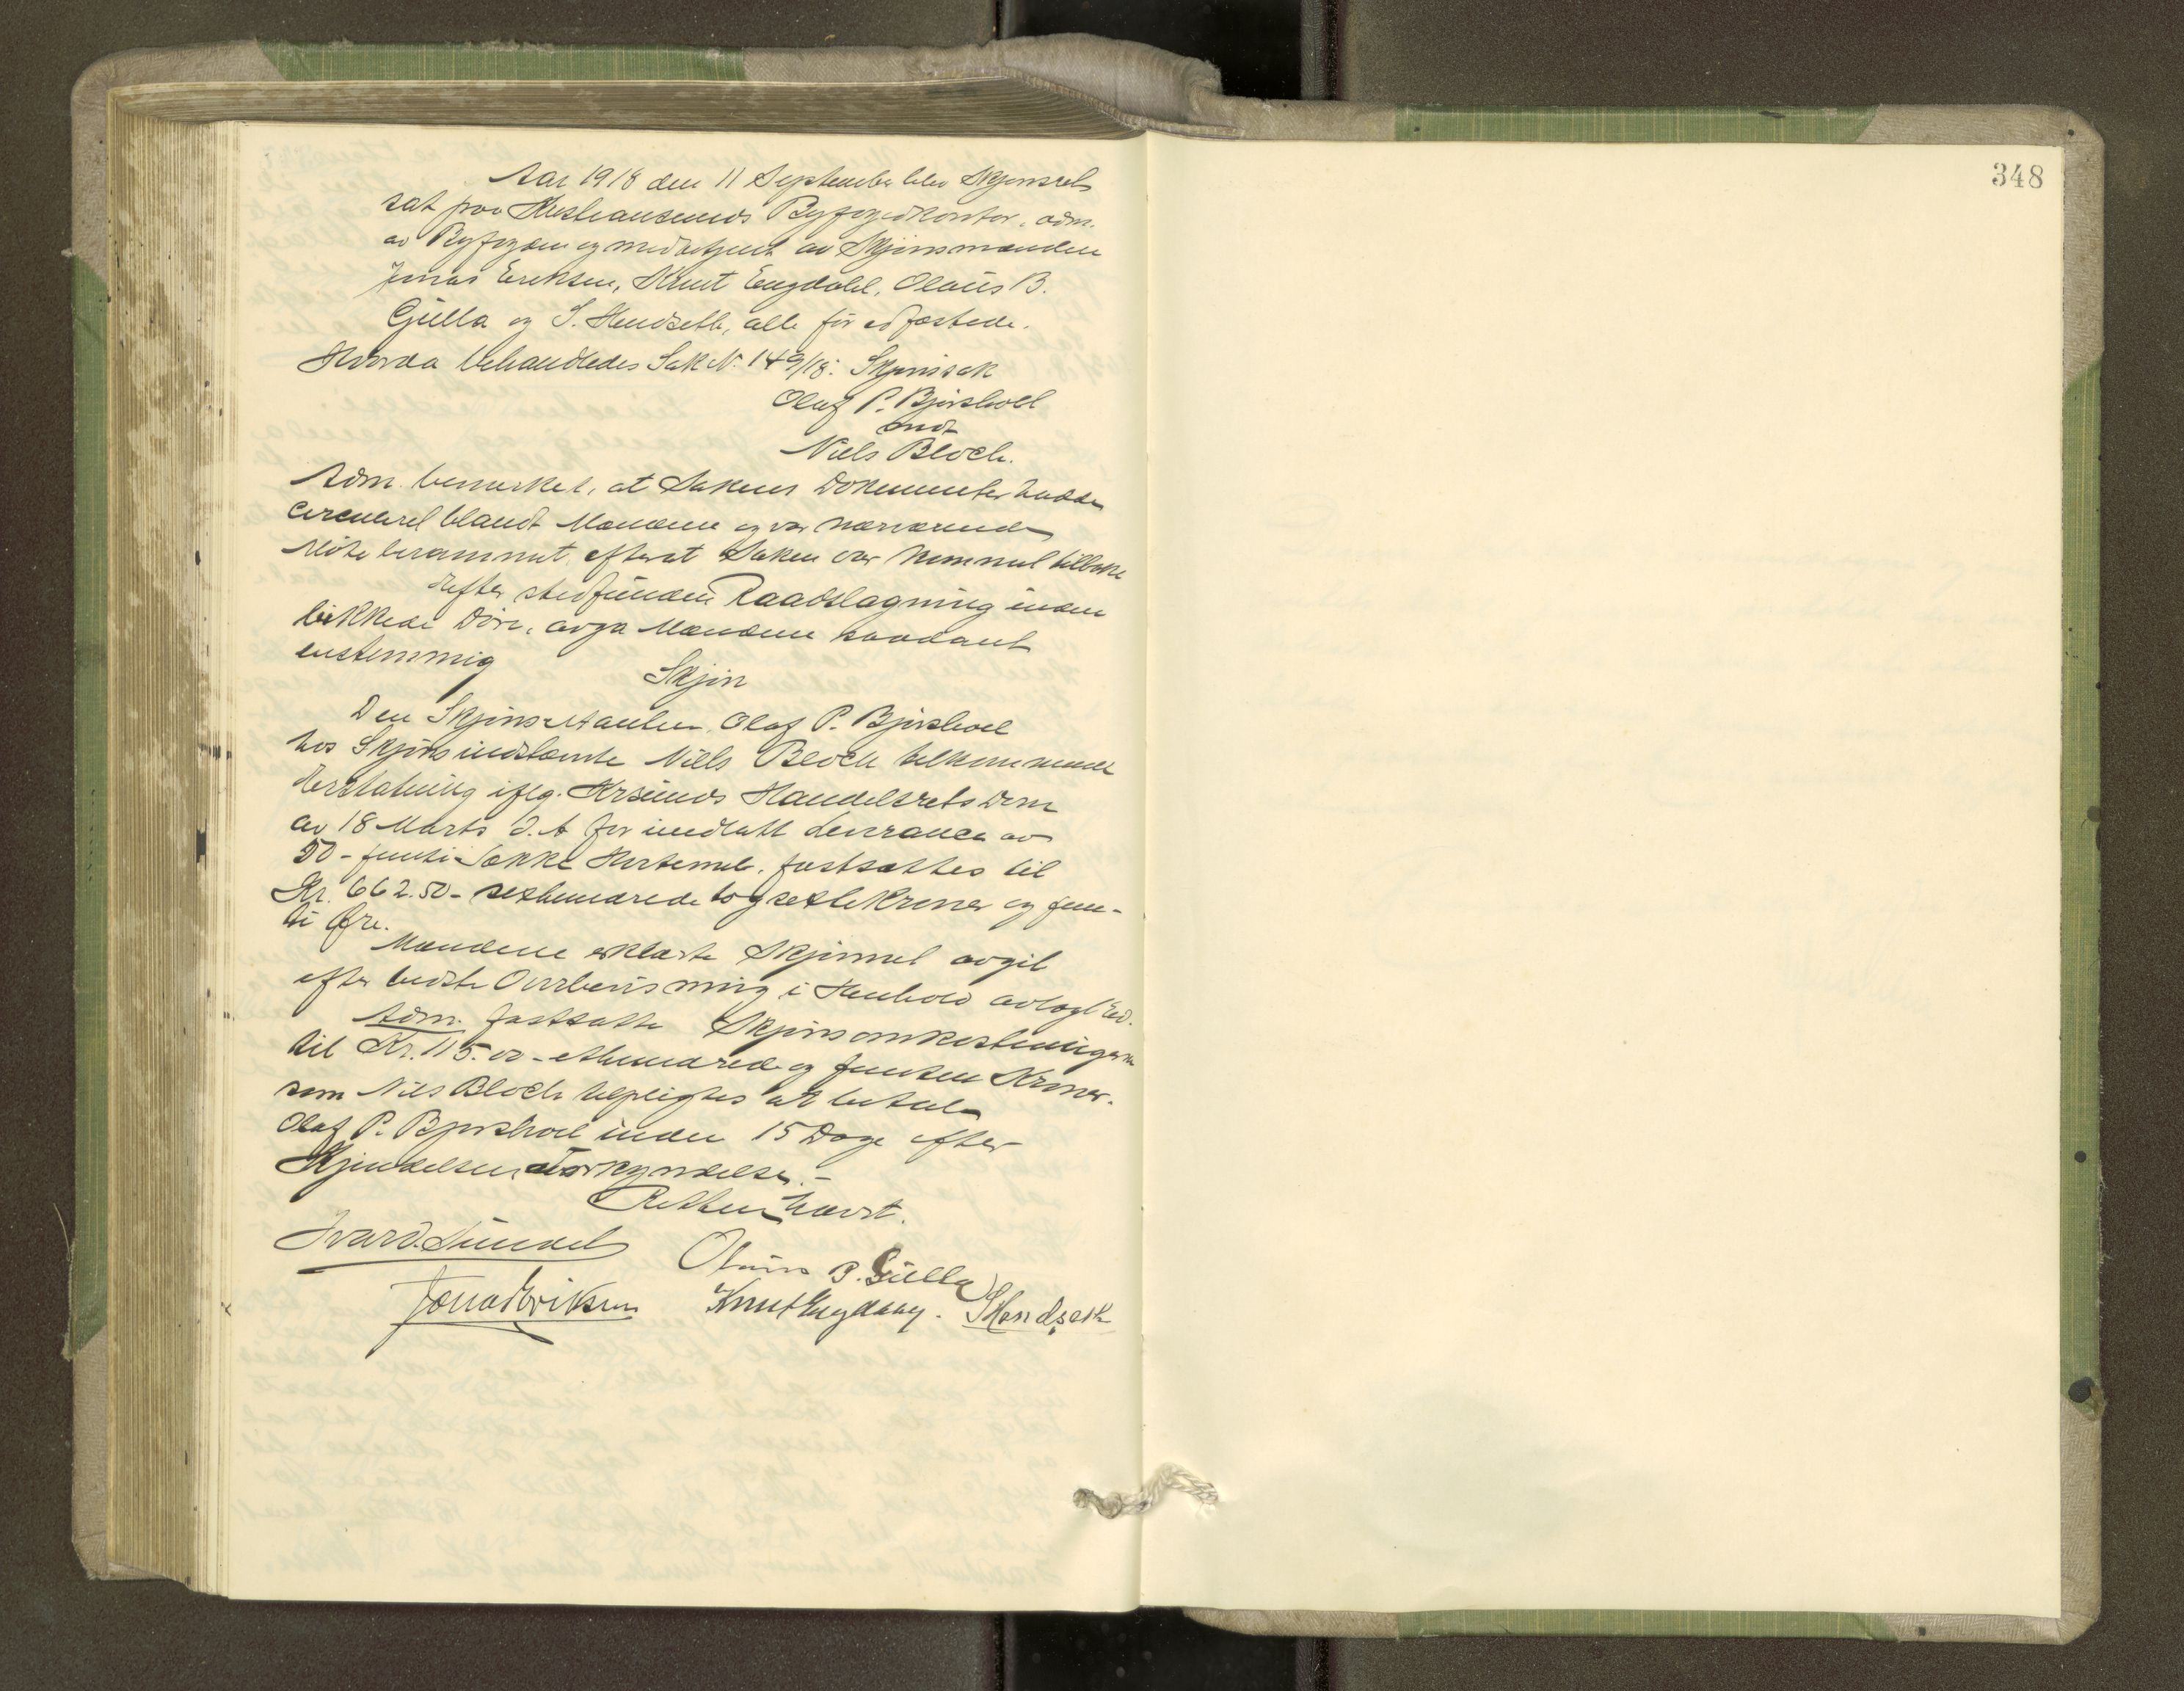 Aar 1918 den 11 September blev Skjønsret
sat paa Kristiansunds Byfogedkontor, adm.
av Byfogden og medbetjent av Skjønsmændene
Jonas Eriksen, Knut Engdahl, Olaus B.
Gulla og S. Hendseth, alle før edfæstede.
Hvorda behandledes Sak N. 149/18: Skjønssak
Olaf P. Bjørshol
mot
Niels Bloch.
Adm. bemerket, at Sakens Dokumenter hadde
circulerel blandt Mændene og var nærværende
Møte berammet efterat Saken var kommet tilbake
Efter stedfunden Raadslagning inden
lukkede Døre, avga Mændene saadant
enstemmig
Skjøn
Den Skjønscitanten, Olaf P. Bjørshol
hos Skjønsindstevnte Niels Bloch tilkommende
Erstatning ifølg. Krsunds Handelsrets Dom
av 18 Marts d. A for undlatt Leverance av
50 - femti Sække Hvetemel, fastsættes til
Kr. 662.50 - sekshundrede to og seksti Kroner og fem-
ti Øre.
Mændene erklærte Skjønnet avgit
efter bedste Overbevisning i Henhold avlagt Ed.
Adm. fastsatte Skjønsomkostningerne
til Kr. 115.00 - ethundrede og femten Kroner.
som Niels Bloch tilpligtes at betale
Olaf P. Bjørshol inden 15 Dage efter
Kjendelsens Forkyndelse. -
Retten hævet.
Olaus B. Gulla
Jonas Eriksen Knut Engdahl. S Hendseth
348